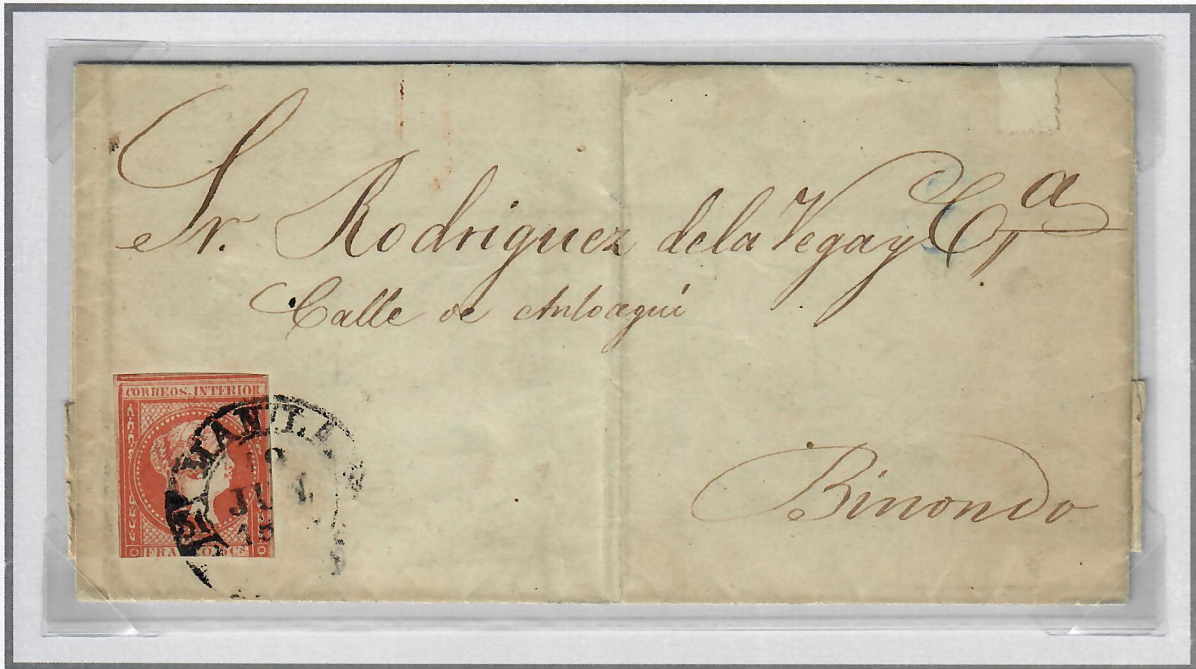 Sr. Rodriguez de la Vega y Cᵃ
Calle de Anloagui
Binondo
CORREOS. INTERIOR
MANILA
JU
FRA
Cs